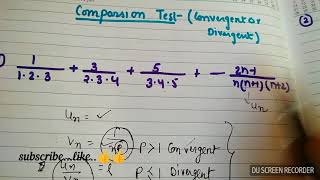 Comparsion Test- (Convergent or
Divergent)
(2)
1/(1·2·3) + 3/(2·3·4) + 5/(3·4·5) + - (2n-1)/(n(n+1)(n+2))
un
un = ✓
vn = 1/nP P>1 Convergent
P≤1 Divergent
un/vn = l
subscribe..like..👍👍
DU SCREEN RECORDER